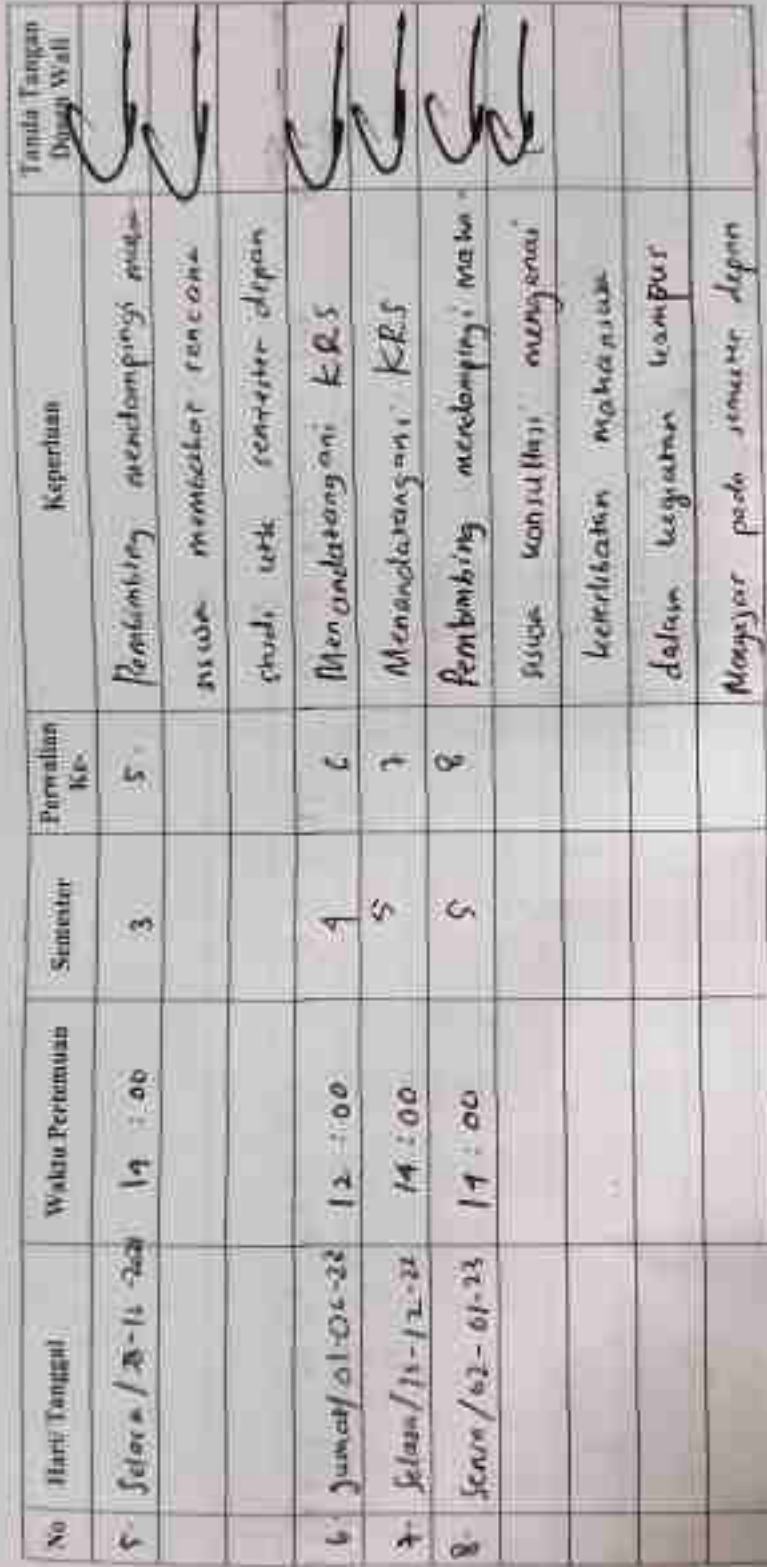 No Hari/ Tanggal Waktu Pertemuan Semester Perwalian Ke- Keperluan Tanda Tangan Dosen Wali
5. Selasa / 14 : 00 3 5. Pembimbing mendampingi maha
siswa membahas rencana
studi utk semester depan
6. Jumat/ 01-04-22 12 : 00 4 6 Menandatangani KRS
7. Selasa/ 14 : 00 5 7 Menandatangani KRS
8. Senin / 02-01-23 14 : 00 5 8 Pembimbing mendampingi maha-
siswa konsultasi mengenai
keterlibatan mahasiswa
dalam kegiatan kampus
Mengajar pada semester depan